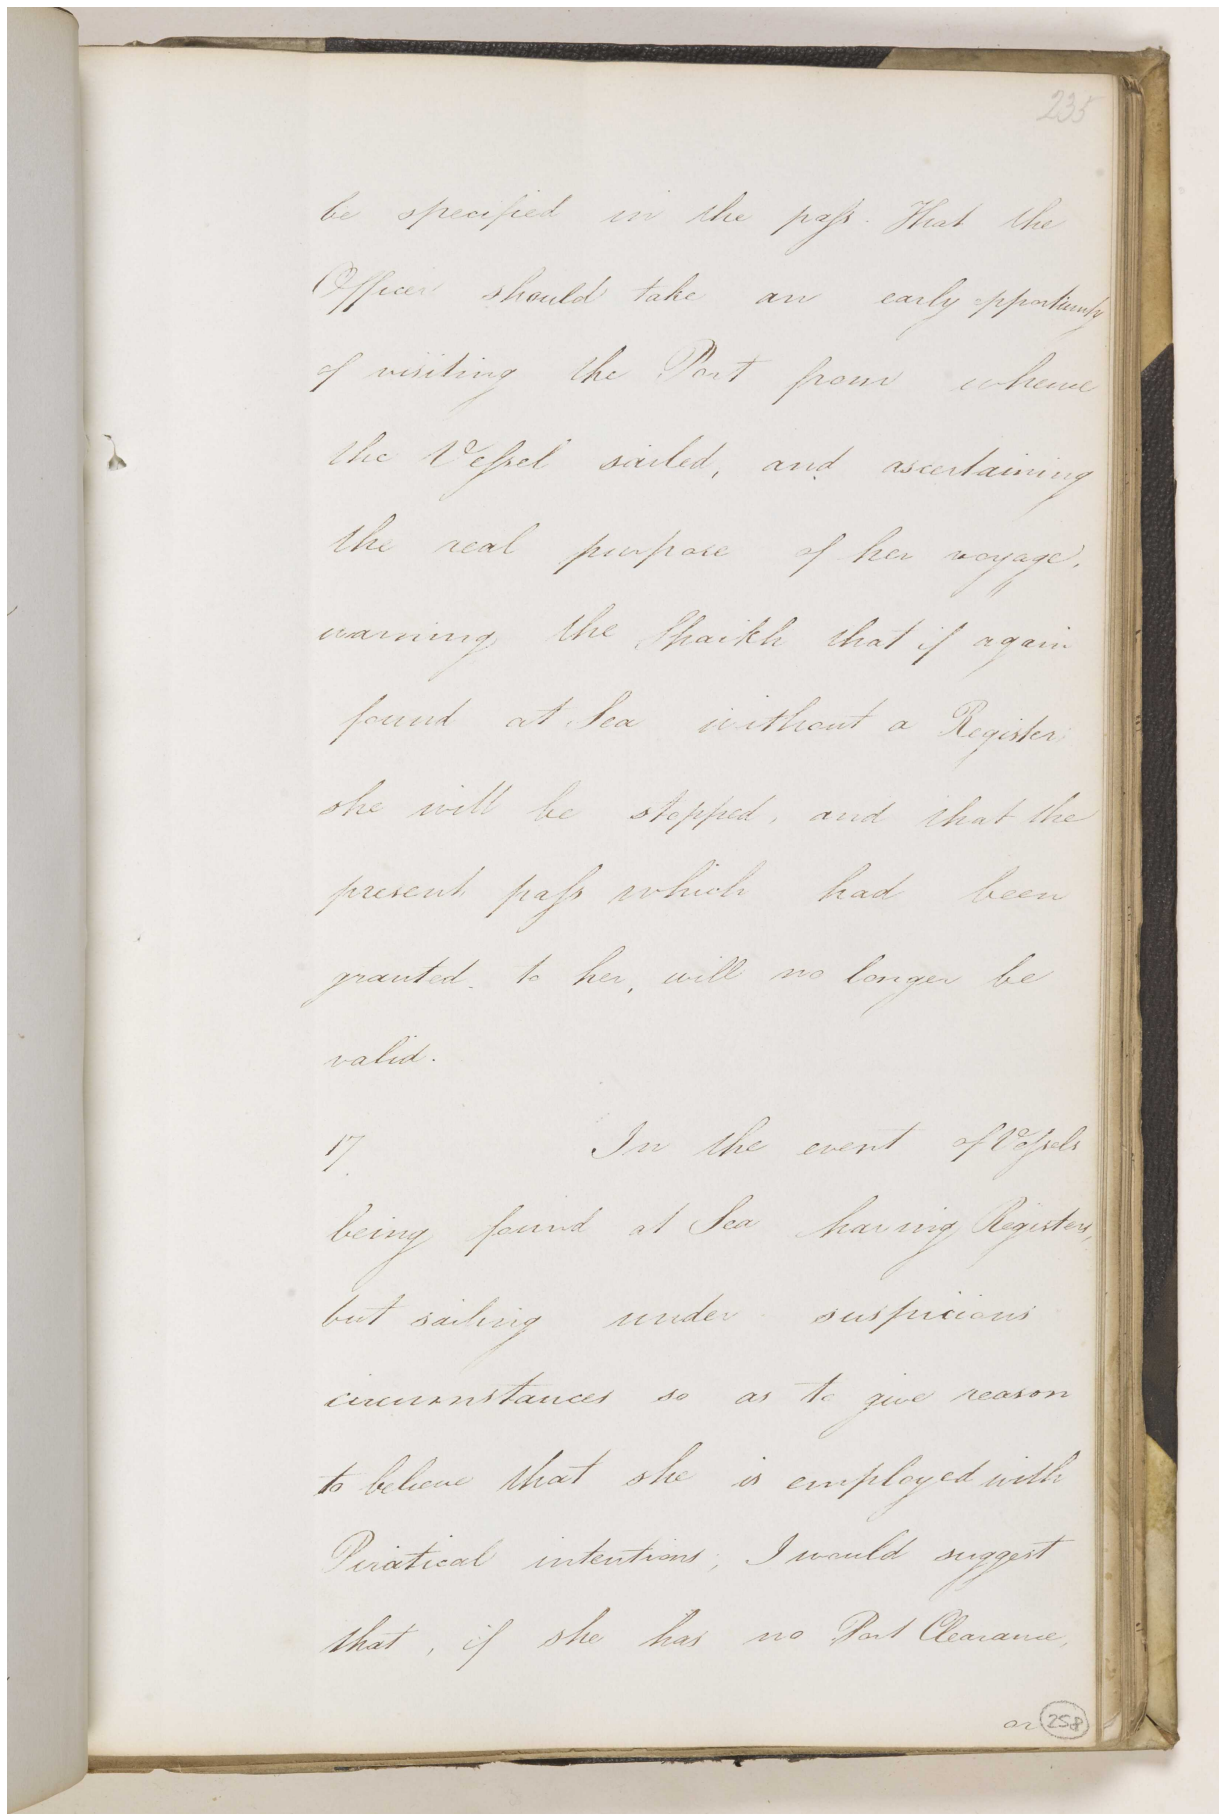 235
be specified in the pass. That the
Officer should take an early opportunity
of visiting the Port from whence
the Vessel sailed, and ascertaining
the real purpose of her voyage,
warning the Shaikh that if again
found at Sea without a Register
she will be stopped, and that the
present pass which had been
granted to her, will no longer be
valid.
17. In the event of Vessels
being found at Sea having Registers,
but sailing under suspicious
circumstances so as to give reason
to believe that she is employed with
Piratical intentions, I would suggest
that, if she has no Port Clearance,
or
258